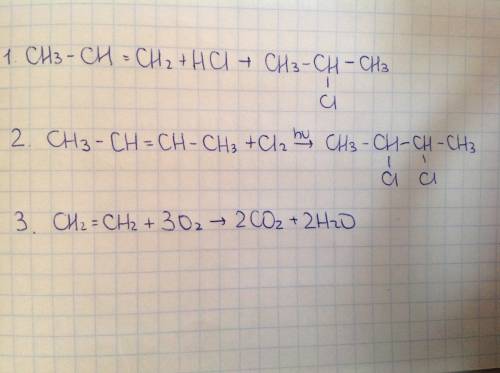 1. CH3-CH=CH2+HCl→CH3-CH-CH3
Cl
2. CH3-CH=CH-CH3+Cl2 hν→ CH3-CH-CH-CH3
Cl Cl
3. CH2=CH2+3O2→2CO2+2H2O